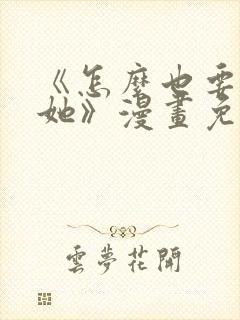 《怎麼也要
她》漫畫免
雲夢花開